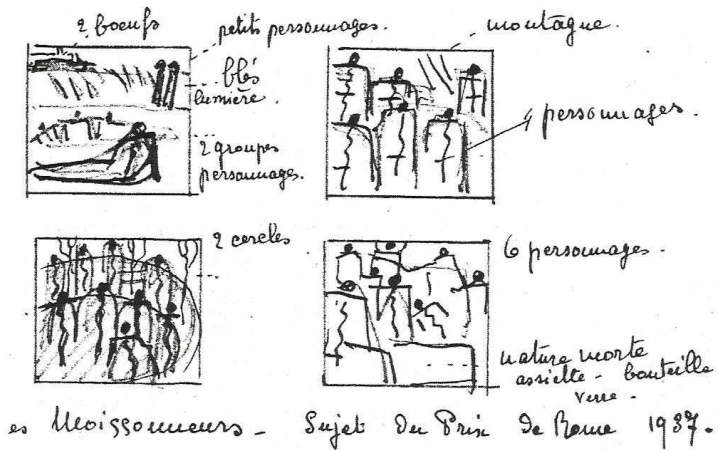 2 boeufs
petits personnages.
blés
lumière.
2 groupes
personnages.
montagne.
4 personnages.
2 cercles
6 personnages -
nature morte
assiette - bouteille
verre -
es Moissonneurs - Sujet du Prix de Rome 1937.